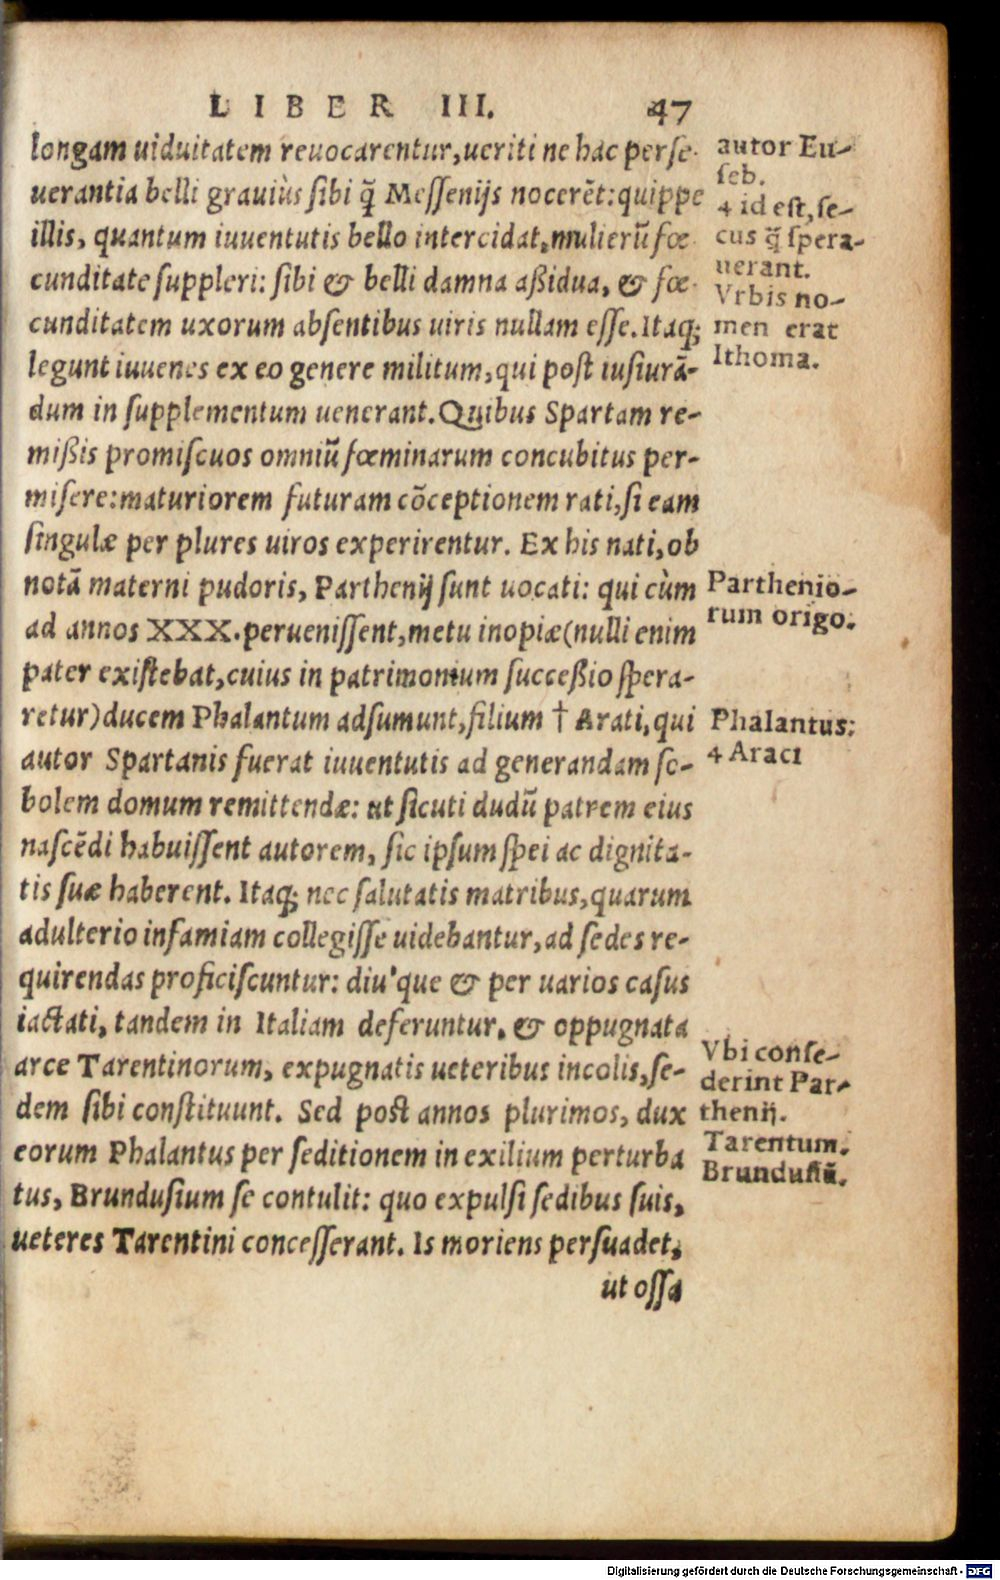 LIBER III. 47
longam uiduitatem reuocarentur, ueriti ne hac perse-
uerantia belli grauiùs sibi q̃ Messenijs nocerẽt: quippe
illis, quantum iuuentutis bello intercidat, mulierũ fœ-
cunditate suppleri: sibi & belli damna aßidua, & fœ-
cunditatem uxorum absentibus uiris nullam esse. Itaq;
legunt iuuenes ex eo genere militum, qui post iusiurã-
dum in supplementum uenerant. Quibus Spartam re-
mißis promiscuos omniũ fœminarum concubitus per-
misere: maturiorem futuram cõceptionem rati, si eam
singulæ per plures uiros experirentur. Ex his nati, ob
notã materni pudoris, Parthenij sunt uocati: qui cùm
ad annos XXX. peruenissent, metu inopiæ (nulli enim
pater existebat, cuius in patrimonium succeßio spera-
retur) ducem Phalantum adsumunt, filium † Arati, qui
autor Spartanis fuerat iuuentutis ad generandam so-
bolem domum remittendæ: ut sicuti dudũ patrem eius
nascẽdi habuissent autorem, sic ipsum spei ac dignita-
tis suæ haberent. Itaq; nec salutatis matribus, quarum
adulterio infamiam collegisse uidebantur, ad sedes re-
quirendas proficiscuntur: diu'que & per uarios casus
iactati, tandem in Italiam deferuntur. & oppugnata
arce Tarentinorum, expugnatis ueteribus incolis, se-
dem sibi constituunt. Sed post annos plurimos, dux
eorum Phalantus per seditionem in exilium perturba
tus, Brundusium se contulit: quo expulsi sedibus suis,
ueteres Tarentini concesserant. Is moriens persuadet,
ut ossa
autor Eu-
seb.
4 id est, se-
cus q̃ spera-
uerant.
Vrbis no-
men erat
Ithoma.
Parthenio-
rum origo.
Phalantus:
4 Araci
Vbi conse-
derint Par-
thenij.
Tarentum.
Brundusiũ.
Digitalisierung gefördert durch die Deutsche Forschungsgemeinschaft - DFG